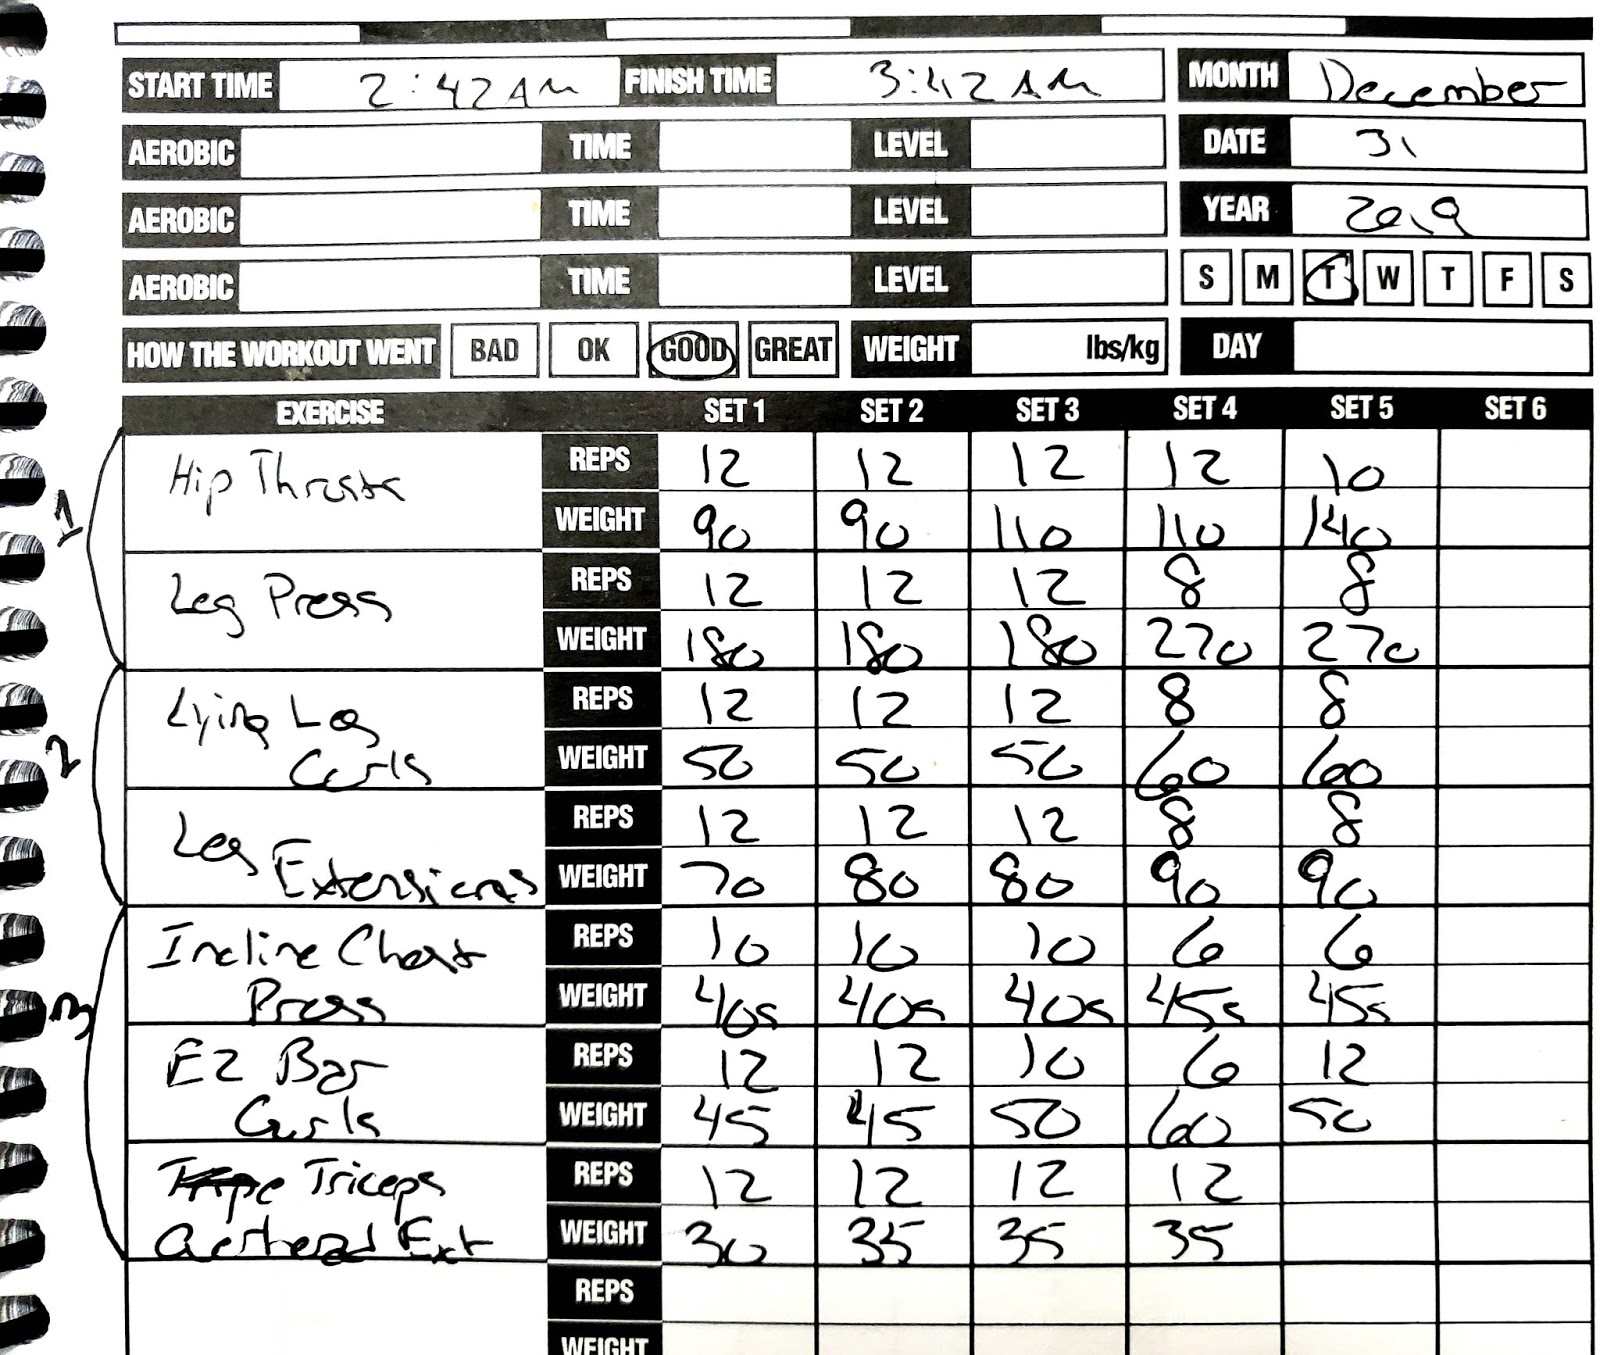 START TIME 2:42 AM FINISH TIME 3:42 AM MONTH December
AEROBIC TIME LEVEL DATE 31
AEROBIC TIME LEVEL YEAR 2019
AEROBIC TIME LEVEL S M T W T F S
HOW THE WORKOUT WENT BAD OK GOOD GREAT WEIGHT lbs/kg DAY
EXERCISE SET 1 SET 2 SET 3 SET 4 SET 5 SET 6
1
Hip Thrusts REPS 12 12 12 12 10
WEIGHT 90 90 110 110 140
Leg Press REPS 12 12 12 8 8
WEIGHT 180 180 180 270 270
2
Lying Leg REPS 12 12 12 8 8
Curls WEIGHT 50 50 50 60 60
Leg REPS 12 12 12 8 8
Extensions WEIGHT 70 80 80 90 90
3
Incline Chest REPS 10 10 10 6 6
Press WEIGHT 40s 40s 40s 45s 45s
EZ Bar REPS 12 12 10 6 12
Curls WEIGHT 45 45 50 60 50
Triceps REPS 12 12 12 12
Overhead Ext WEIGHT 30 35 35 35
REPS
WEIGHT